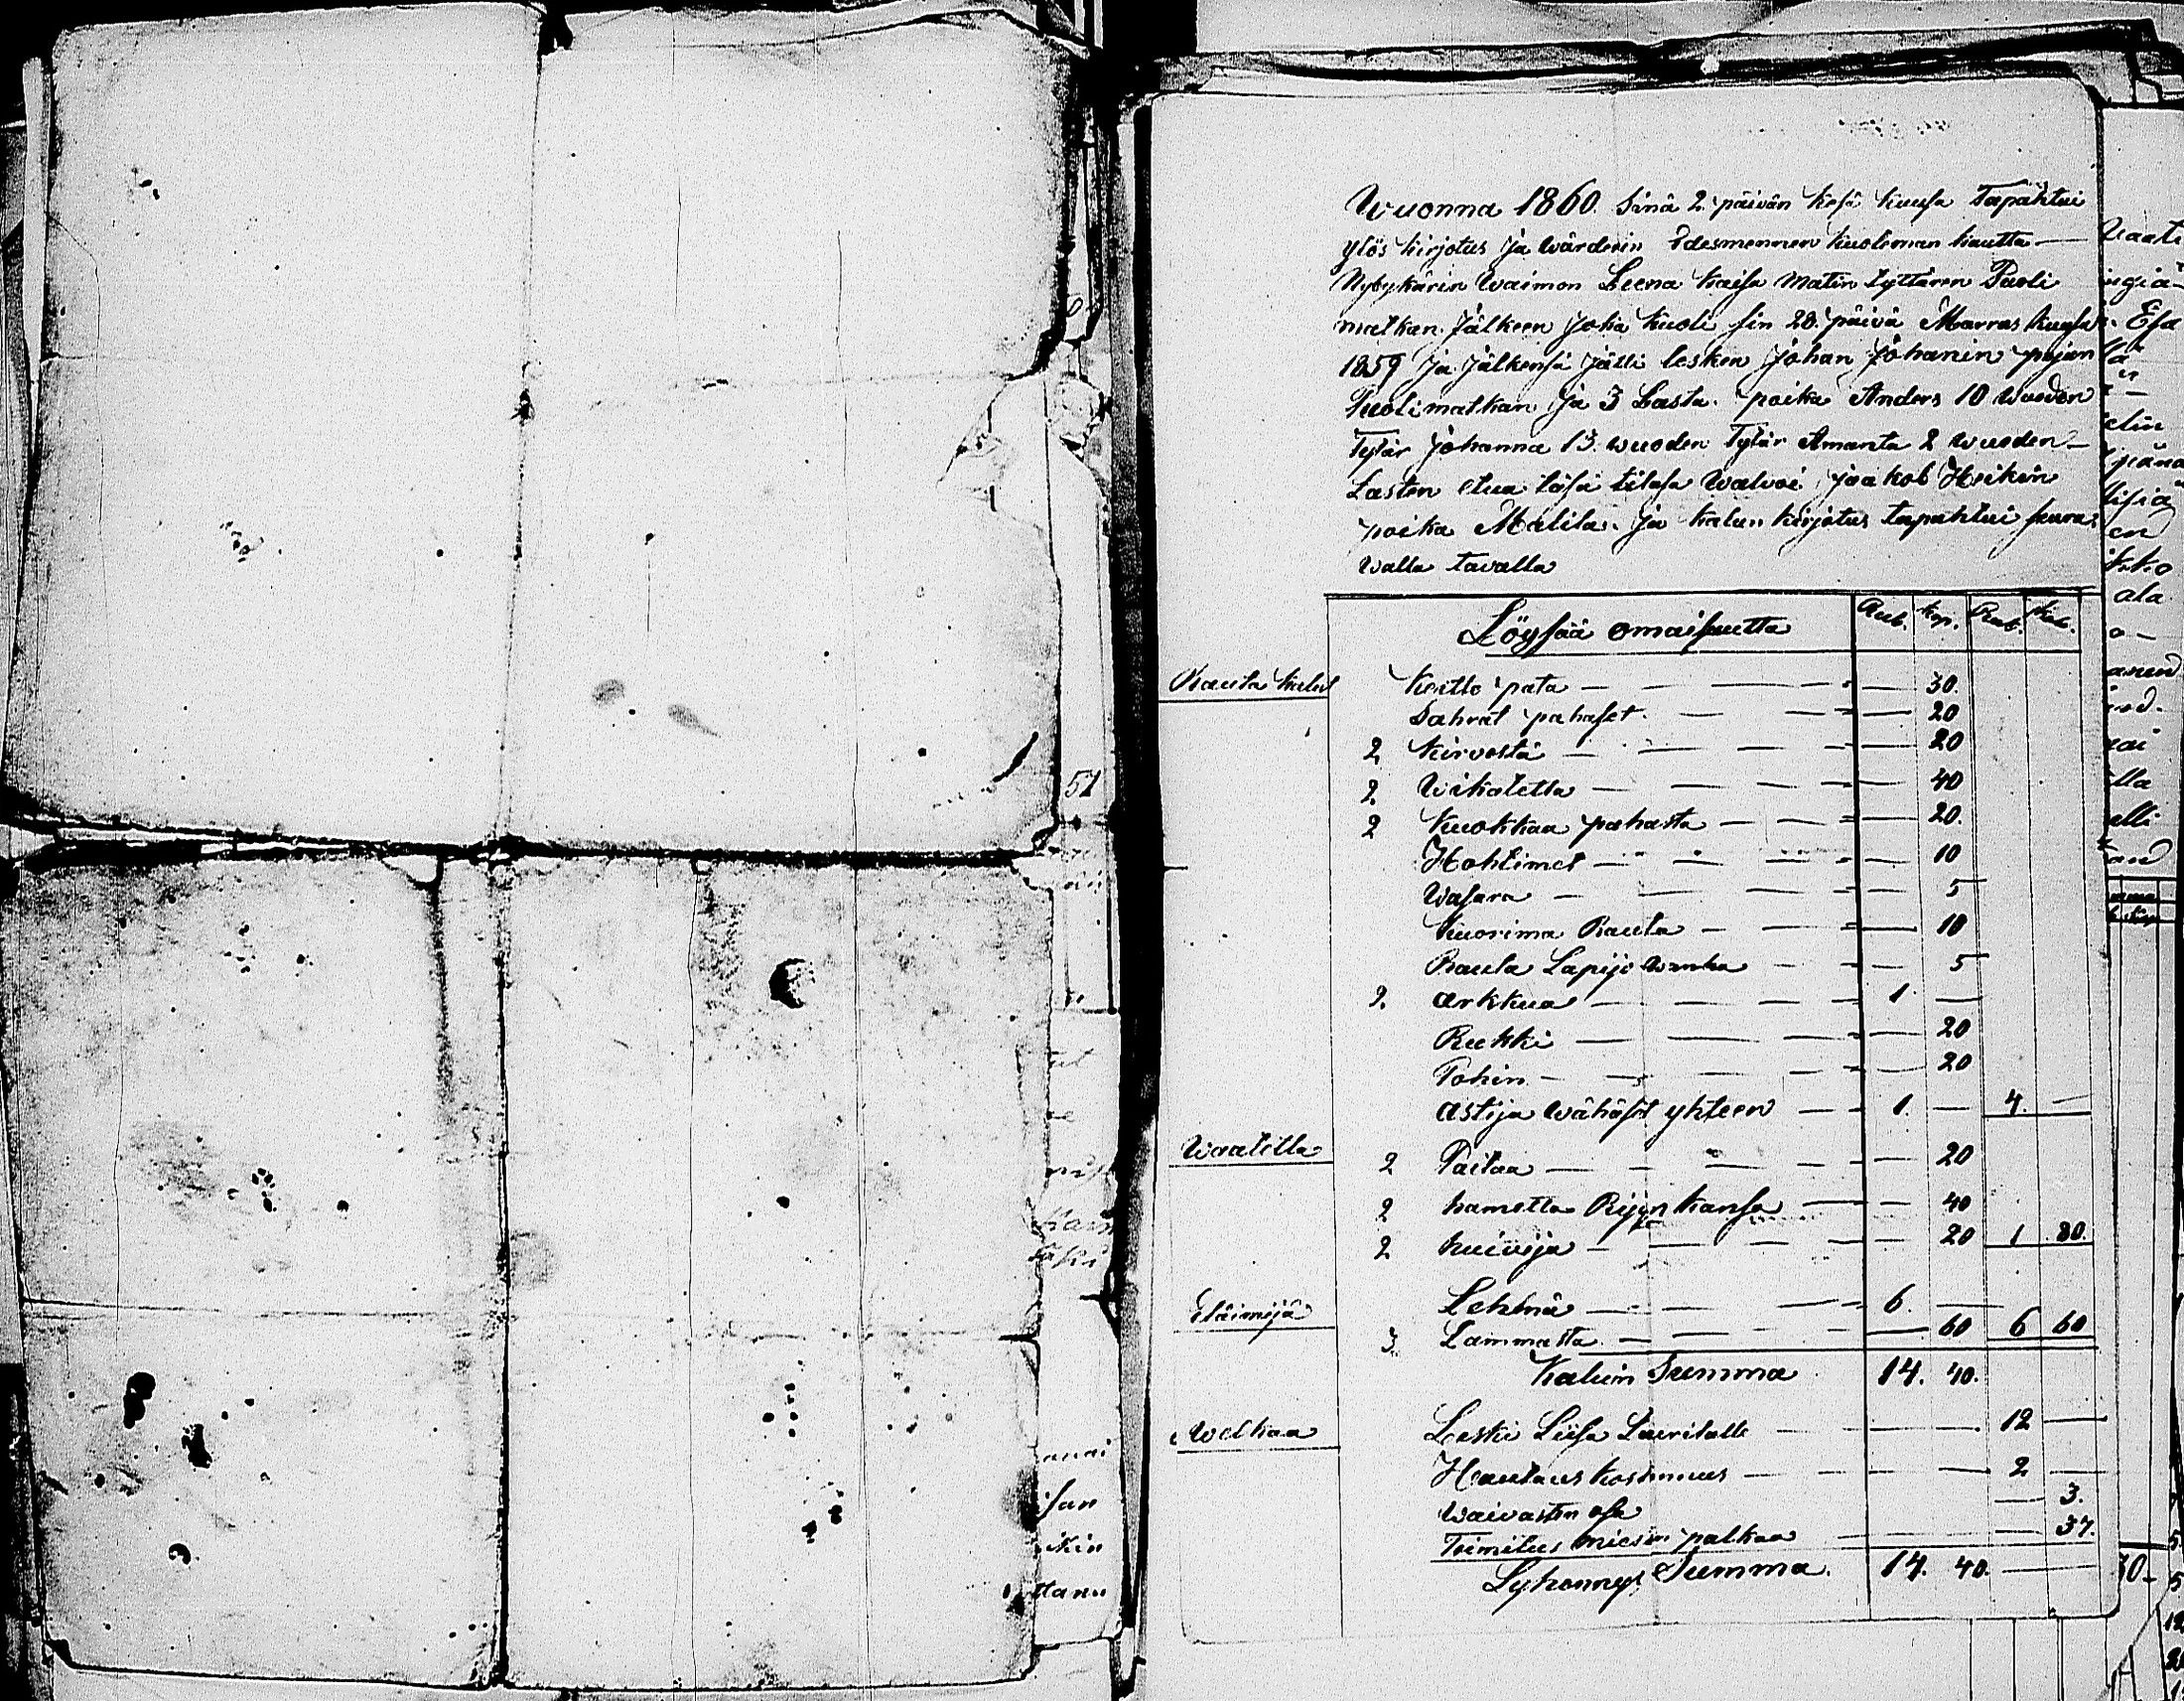 Wuonna 1860. Sinä 2. päivän Kesä kuusa Tapahtui
ylös kirjotus ja Wärderin Edesmennen kuoleman kautta —
Nybykärin Waimon Leena Kaisa Matin tyttären Puoli
matkan Jälkeen Joka kuoli sin 28. päivä Marras kuusa
1859 Ja Jälkensä Jätti lesken Johan Johanin pojan
Puolimatkan Ja 3 Lasta. poika Anders 10 Wuoden
Tytär Johanna 13. wuoden Tytär Amanta 2 wuoden —
Lasten etua täsä tilasa Walvoi Jaakob Heikin
poika Malila. Ja kalun kirjotus tapahtui seura
walla tavalla
Löysää omaisuutta Rub. Kop. Rub. Kop.
Rauta kalut Keitto pata — 30.
Sahrat pahaset. — 20
2 kirvestä — 20
2 Wikatetta — 40
2 Kuokkaa pahasta — 20.
Hohtimet — 10
Wasara — 5
Kuorima Rauta — 10
Rauta Lapijo wanha — 5
2. arkkua — 1. —
Rukki — 20
Pohin — 20
Astija wähäset yhteen — 1. — 4. —
Waatetta 2 Paitaa — 20
2 hametta Rijyn kansa — 40
2 huivija — 20 1 80.
Eläimijä Lehmä — 6. —
3 Lammasta — 60 6 60
Kalun Summa 14. 40.
Welkaa Leski Liisa Lauritalle — 12 —
Hautaus kostannus — 2 —
Waivasten osa — 3.
Toimitus miesen palkaa — 37.
Lyhennys Summa. 14. 40. —
51